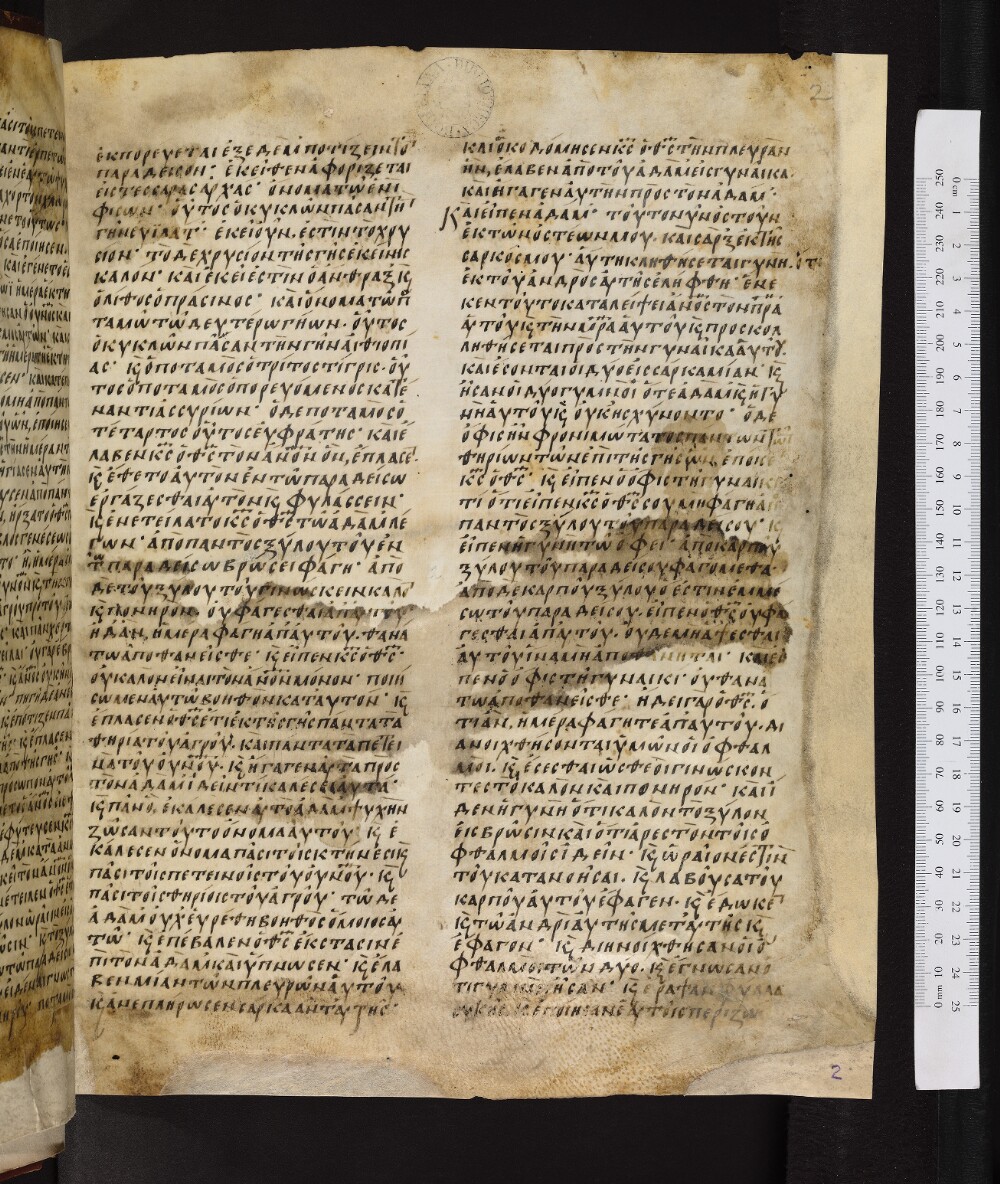 ἐκπορεύεται ἐξ ἐδὲμ ποτίζειν τὸν
παράδεισον· ἐκεῖθεν ἀφορίζεται
εἰς τέσσαρας ἀρχάς· ὄνομα τῶ ἑνὶ
φισών· οὗτος ὁ κυκλῶν πᾶσαν τὴν
γῆν εὐιλάτ· ἐκεῖ οὖν ἐστιν τὸ χρυ
σίον· τὸ δὲ χρυσίον τῆς γῆς ἐκείνης
καλόν· καὶ ἐκεῖ ἐστιν ὁ ἄνθραξ κ
ὁ λίθος ὁ πράσινος· καὶ ὄνομα τῶ π
ταμῶ τῶ δευτέρω γηών· οὗτος
ὁ κυκλῶν πᾶσαν τὴν γῆν αἰθιοπί
ας· κ ὁ ποταμὸς ὁ τρίτος τίγρις· οὗ
τος ὁ ποταμὸς ὁ πορευόμενος κατέ
ναντι ἀσσυρίων· ὁ δὲ ποταμὸς ὁ
τέταρτος οὗτος εὐφράτης· καὶ ἔ
λαβεν κς ὁ θς τὸν ἄνον ὃν ἔπλασε
κ ἔθετο αὐτὸν ἐν τῶ παραδείσω
ἐργάζεσθαι αὐτὸν κ φυλάσσειν
κ ἐνετείλατο κς ὁ θς τῶ ἀδὰμ λέ
γων· ἀπὸ παντὸς ξύλου τοῦ ἐν
τ παραδείσω βρώσει φαγῆ· ἀπὸ
δὲ τοῦ ξύλου τοῦ γινώσκειν καλὸ
κ πονηρόν· οὐ φάγεσθαι ἀπαυτοῦ
ἧ δ ἂν ἡμέρα φαγῆ ἀπ αὐτοῦ· θανά
τω ἀποθανεῖσθε· κ εἶπεν κς ὁ θς·
οὐ καλὸν εἶναι τὸν ἄνον μόνον· ποιή
σωμεν αὐτῶ βοηθὸν κατ αὐτόν· κ
ἔπλασεν ὁ θς ἔτι ἐκ τῆς γῆς πάντα τὰ
θηρία τοῦ ἀγροῦ· καὶ πάντα τὰ πετει
νὰ τοῦ οὐνοῦ· κ ἤγαγεν αὐτὰ πρὸς
τὸν ἀδὰμ ἰδεῖν τί καλέσει αὐτά·
κ πᾶν ὃ ἐκάλεσεν αὐτὸ ἀδὰμ ψυχὴν
ζῶσαν τοῦτο ὄνομα αὐτοῦ· κ ἐ
κάλεσεν ὄνομα πᾶσι τοῖς κτήνεσι κ
πᾶσι τοῖς πετεινοῖς τοῦ οὐνοῦ· κ
πᾶσι τοῖς θηρίοις τοῦ ἀγροῦ· τῶ δὲ
ἀδὰμ οὐχ εὑρέθη βοηθὸς ὅμοιος αὐ
τῶ· κ ἐπέβαλεν ὁ θς ἔκστασιν ἐ
πὶ τὸν ἀδὰμ καὶ ὕπνωσεν· κ ἔλα
βεν μίαν τῶν πλευρῶν αὐτοῦ
κ ἀνεπλήρωσεν σάρκα ἀντ αὐτῆς·
καὶ ὠκοδόμησεν κς ὁ θς τὴν πλευρὰν
ἣν ἔλαβεν ἀπὸ τοῦ ἀδὰμ εἰς γυναῖκα·
καὶ ἤγαγεν αὐτὴν πρὸς τὸν ἀδάμ·
Καὶ εἶπεν ἀδάμ· τοῦτο νῦν ὀστοῦν
ἐκ τῶν ὀστέων μου· καὶ σὰρξ ἐκ τῆς
σαρκός μου· αὕτη κληθήσεται γυνή· ὅτι
ἐκ τοῦ ἀνδρὸς αὐτῆς ἐλήφθη· ἕνε
κεν τούτου καταλείψει ἄνος τὸν πρα
αὐτοῦ κ τὴν μρα αὐτοῦ κ προσκολ
ληθήσεται πρὸς τὴν γυναῖκα αὐτοῦ·
καὶ ἔσονται οἱ δύο εἰς σάρκα μίαν· κ
ἦσαν οἱ δύο γυμνοὶ ὅ τε ἀδὰμ κ ἡ γυ
νὴ αὐτοῦ κ οὐκ ἠσχύνοντο· ὁ δὲ
ὄφις ἦν φρονιμώτατος πάντων τῶν
θηρίων τῶν ἐπὶ τῆς γῆς ὧν ἐποίησε
κς ὁ θς· κ εἶπεν ὁ ὄφις τῆ γυναικί
τί ὅτι εἶπεν κς ὁ θς οὐ μὴ φάγητε ἀ
παντὸς ξύλου τοῦ παραδείσου· κ
εἶπεν ἡ γυνὴ τῶ ὄφει· ἀπὸ καρποῦ
ξύλου τοῦ παραδείσου φαγόμεθα·
ἀπὸ δὲ καρποῦ ξύλου ὅ ἐστιν ἐν μέ
σω τοῦ παραδείσου· εἶπεν ὁ θς οὐ φά
γεσθαι ἀπ αὐτοῦ· οὐδὲ μὴ ἅψεσθαι
αὐτοῦ ἵνα μὴ ἀποθάνητε· καὶ εἶ
πεν ὁ ὄφις τῆ γυναικί· οὐ θανά
τω ἀποθανεῖσθε· ἤδει γὰρ ὁ θς ὅ
τι ἂν ἡμέρα φάγητε ἀπ αὐτοῦ· δι
ανοιχθήσονται ὑμῶν οἱ ὀφθαλ
μοί· κ ἔσεσθαι ὡς θεοὶ γινώσκον
τες τὸ καλὸν καὶ πονηρόν· καὶ ἴ
δεν ἡ γυνὴ ὅτι καλὸν τὸ ξύλον
εἰς βρῶσιν καὶ ὅτι ἀρεστὸν τοῖς ὀ
φθαλμοῖς ἰδεῖν· κ ὡραῖόν ἐστιν
τοῦ κατανοῆσαι· κ λαβοῦσα τοῦ
καρποῦ αὐτοῦ ἔφαγεν· κ ἔδωκε
κ τῶ ἀνδρὶ αὐτῆς μετ αὐτῆς κ
ἔφαγον· κ διηνοίχθησαν οἱ ὀ
φθαλμοὶ τῶν δύο· κ ἔγνωσαν ὅ
τι γυμνοὶ ἦσαν· κ ἔραψαν φύλλα
συκῆς κ ἐποίησαν ἑαυτοῖς περιζώ
2
2